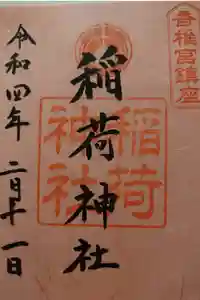 香椎宮鎮座
稲荷神社
稲荷
神社
令和四年二月十一日